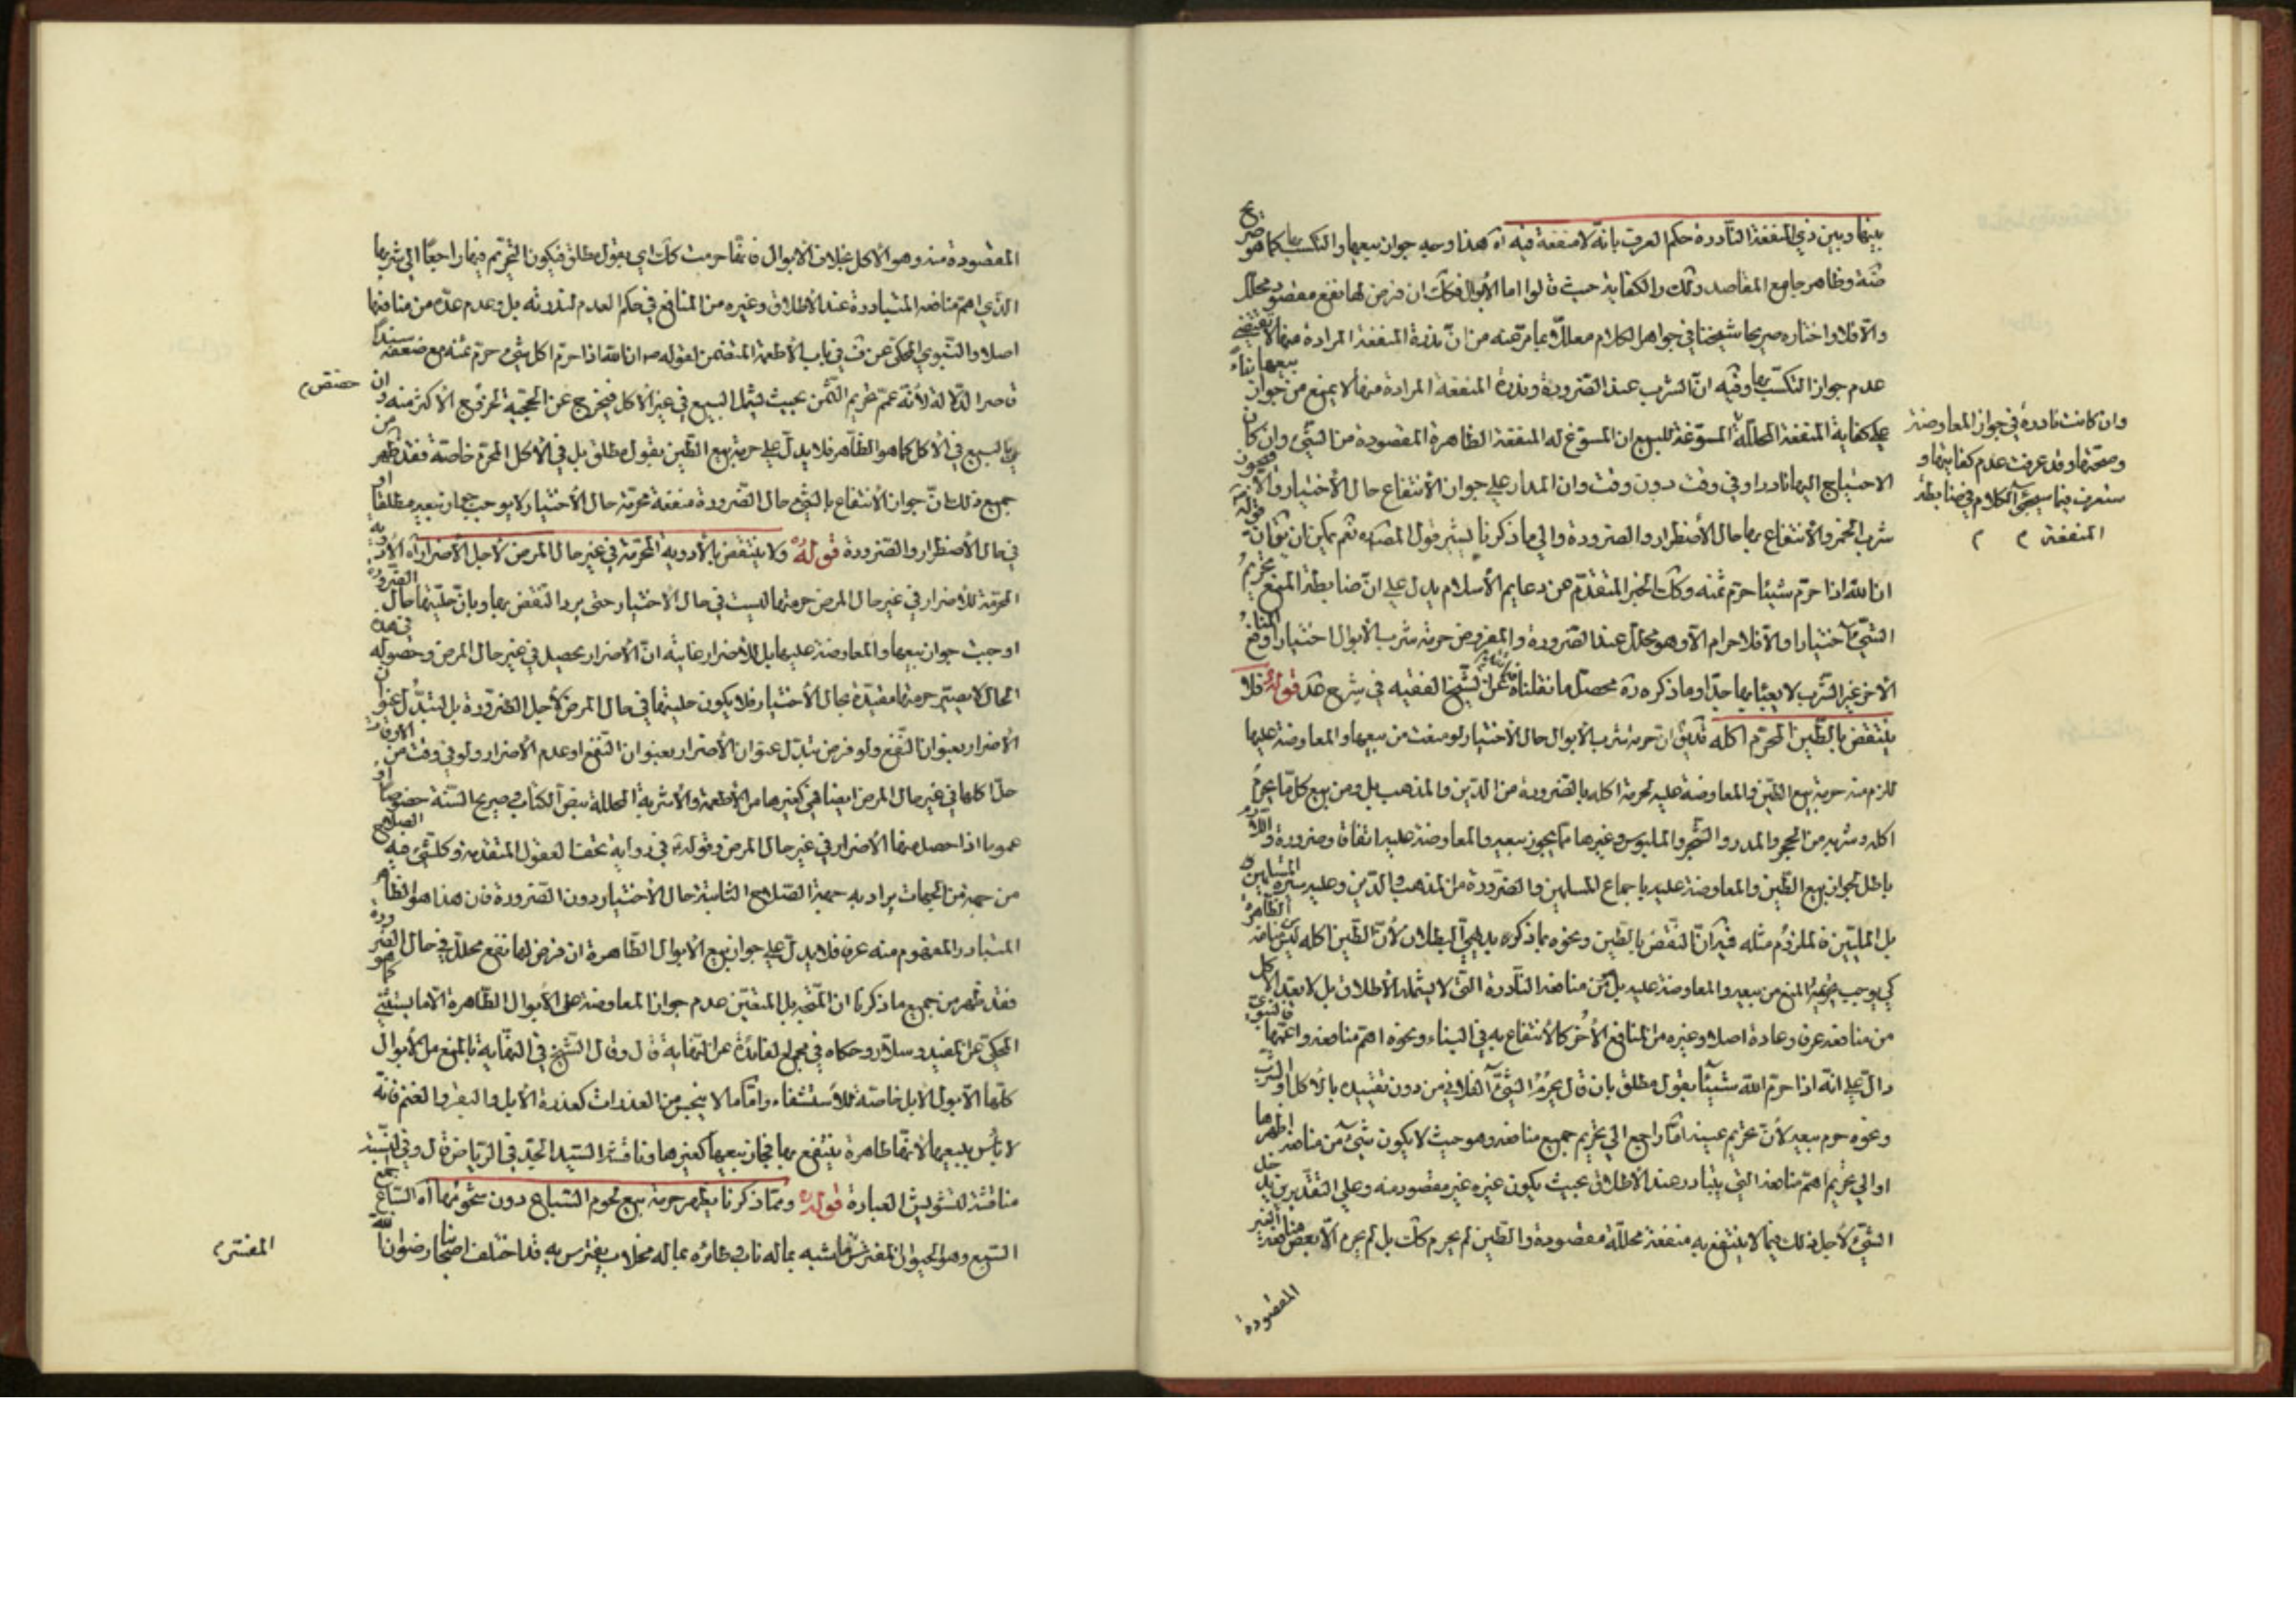 بينها وبين ذي المنفعة النادرة حكم العرف بانه لا منفعة فيه اه هذا وجه جواز بيعها والتكسب بها كما هو صريح
ضة وظاهر جامع المقاصد ولك والكفاية حيث قالوا اما الابوال فكك ان فرض لها نفع مقصود محلل
والا فلا واختاره صريحا شيخنا في جواهر الكلام معللا بما مر عنه من ان ندرة المنفعة المرادة منها لا تقتضي
عدم جواز التكسب بها وفيه ان الشرب عند الضرورة وندرة المنفعة المرادة منها لا يمنع من جواز بيعها بناء
على كفاية المنفعة المحللة المسوغة للبيع ان المسوغ له المنفعة الظاهرة المقصودة من الشئ وان كان
الاحتياج اليها نادرا وفي وقت دون وقت وان المدار على جواز الانتفاع حال الاختيار والا فيجوز
شرب الخمر والانتفاع بها حال الاضطرار والضرورة والى ما ذكرنا يشير قول المص ره نعم يمكن ان يقال ان قوله
ان الله اذا حرم شيئا حرم ثمنه وكك الخبر المتقدم عن دعايم الاسلام يدل على ان ضابطة المنع تحريم
الشئ اختيارا والا فلا حرام الا وهو محلل عند الضرورة والمفروض حرمة شرب الابوال اختيارا والمنافع
الاخر غير الشرب لا يعبأ بها جدا وما ذكره ره محصل ما نقلناه عن الشيخ الفقيه في شرح عد قوله فلا
ينتقض بالطين المحرم اكله قد يق ان حرمة شرب الابوال حال الاختيار لو منعت من بيعها والمعاوضة عليها
للزم منه حرمة بيع الطين والمعاوضة عليه لحرمة اكله بالضرورة من الدين والمذهب بل ومن بيع كل ما يحرم
اكله وشربه من الحجر والمدر والشجر والملبوس وغيرها مما يجوز بيعه والمعاوضة عليه اتفاقا وضرورة واللازم
باطل لجواز بيع الطين والمعاوضة عليه باجماع المسلمين والضرورة من المذهب والدين وعليه سيرة المسلمين
بل المليين فالملزوم مثله فيه ان النقض بالطين ونحوه بما ذكره بديهي البطلان لان الطين اكله ليس منافعه الظاهرة
كي يوجب حرمته المنع من بيعه والمعاوضة عليه بل من منافعه النادرة التي لا يشمله الاطلاق بل لا يعد الاكل
من منافعه عرفا وعادة اصلا وغيره من المنافع الاخر كالانتفاع به في البناء ونحوه اهم منافعه واعمها فالنبوي
دال على انه اذا حرم الله شيئا بقول مطلق بان قال يحرم الشئ الفلاني من دون تقييده بالاكل او الشرب
ونحوه حرم بيعه لان تحريم عينه اما راجع الى تحريم جميع منافعه وهو حيث لا يكون شئ من منافعه اظهرها
او الى تحريم اهم منافعه التي يتبادر عند الاطلاق بحيث يكون غيره غير مقصود منه وعلى التقديرين يدخل
الشئ لاجل ذلك فيما لا ينتفع به منفعة محللة مقصودة والطين لم يحرم كك بل لم يحرم الا بعض منافعه الغير
المقصودة
وان كانت نادرة في جواز المعاوضة
وصحتها وقد عرفت عدم كفايتها و
ستعرف فيما سيجئ الكلام في ضابطة
المنفعة م م
المقصودة منه وهو الاكل بخلاف الابوال فانها حرمت كك اي بقول مطلق فيكون التحريم فيها راجعا الى شربها
الذي اهم منافعه المتبادرة عند الاطلاق وغيره من المنافع في حكم العدم لندرته بل وعدم عده من منافعها
اصلا والنبوي المحكي عن ف في باب الاطعمة المتضمن لقوله ص ان الله اذا حرم اكل شئ حرم ثمنه مع ضعفه سندا
قاصر الدلالة لانه عمم تحريم الثمن بحيث يشمل البيع في غير الاكل فيخرج عن الحجية لخروج الاكثر منه وان
بالبيع في الاكل كما هو الظاهر فلا يدل على حرمة بيع الطين بقول مطلق بل في الاكل المحرم خاصة فقد ظهر من
جميع ذلك ان جواز الانتفاع بالشئ حال الضرورة منفعة محرمة حال الاختيار لا يوجب جواز بيعه مطلقا او
في حال الاضطرار والضرورة قوله ولا ينتقض بالادوية المحرمة في غير حال المرض لاجل الاضرار اه الادوية
المحرمة للاضرار في غير حال المرض حرمتها ليست في حال الاختيار حتى يرد النقض بها وبان حليتها حال الضرورة
اوجبت جواز بيعها والمعاوضة عليها بل للاضرار غايته ان الاضرار يحصل في غير حال المرض وحصوله في هذه
الحال لا يصير حرمتها مقيدة بحال الاختيار فلا يكون حليتها في حال المرض لاجل الضرورة بل لتبدل عنوان
الاضرار بعنوان النفع ولو فرض تبدل عنوان الاضرار بعنوان النفع او عدم الاضرار ولو في وقت من الاوقات
حل اكلها في غير حال المرض ايضا فهي كغيرها من الاطعمة والاشربة المحللة بنص الكتاب وصريح السنة خصوصا او
عموما اذا حصل منها الاضرار في غير حال المرض وقوله ع في رواية تحف العقول المتقدمة وكل شئ فيه الصلاح
من جهة من الجهات يراد به جهة الصلاح الثابتة حال الاختيار دون الضرورة فان هذا هو الظاهر
المتبادر المفهوم منه عرفا فلا يدل على جواز بيع الابوال الظاهرة ان فرض لها نفع محلل في حال الضرورة
فقد ظهر من جميع ما ذكرنا ان المتجه بل المتعين عدم جواز المعاوضة على الابوال الطاهرة الا ما يستثنى كما هو
المحكي عن المفيد وسلار وحكاه في مجمع الفائدة عن النهاية قال وقال الشيخ في النهاية بالمنع من الابوال
كلها الا بول الابل خاصة للاستشفاء واما ما لا ينجس من العذرات كعذرة الابل والبقر والغنم فانه
لا باس ببيعها لانها طاهرة ينتفع بها فجاز بيعها كغيرها وناقشه السيد الجد في الرياض قال وفي النسبة
مناقشة لتشويش العبارة قوله ومما ذكرنا يظهر حرمة بيع لحوم السباع دون شحومها اه السباع جمع
السبع وهو الحيوان المفترس ما شبه بماله ناب وظائره بما له مخلاب يفترس به قد اختلف اصحابنا رضوان الله